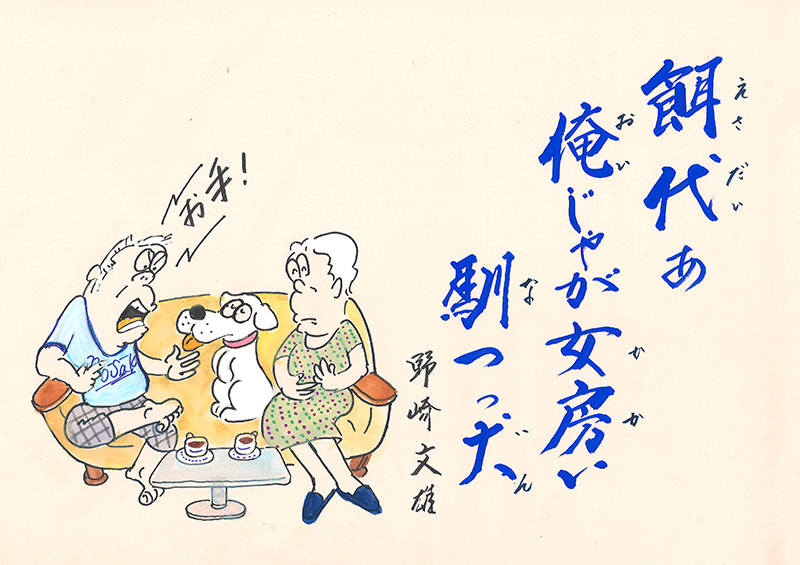 えさだい
餌代あ
おい かか
俺じゃが女房い
な
馴つっ犬
野崎文雄
お手!